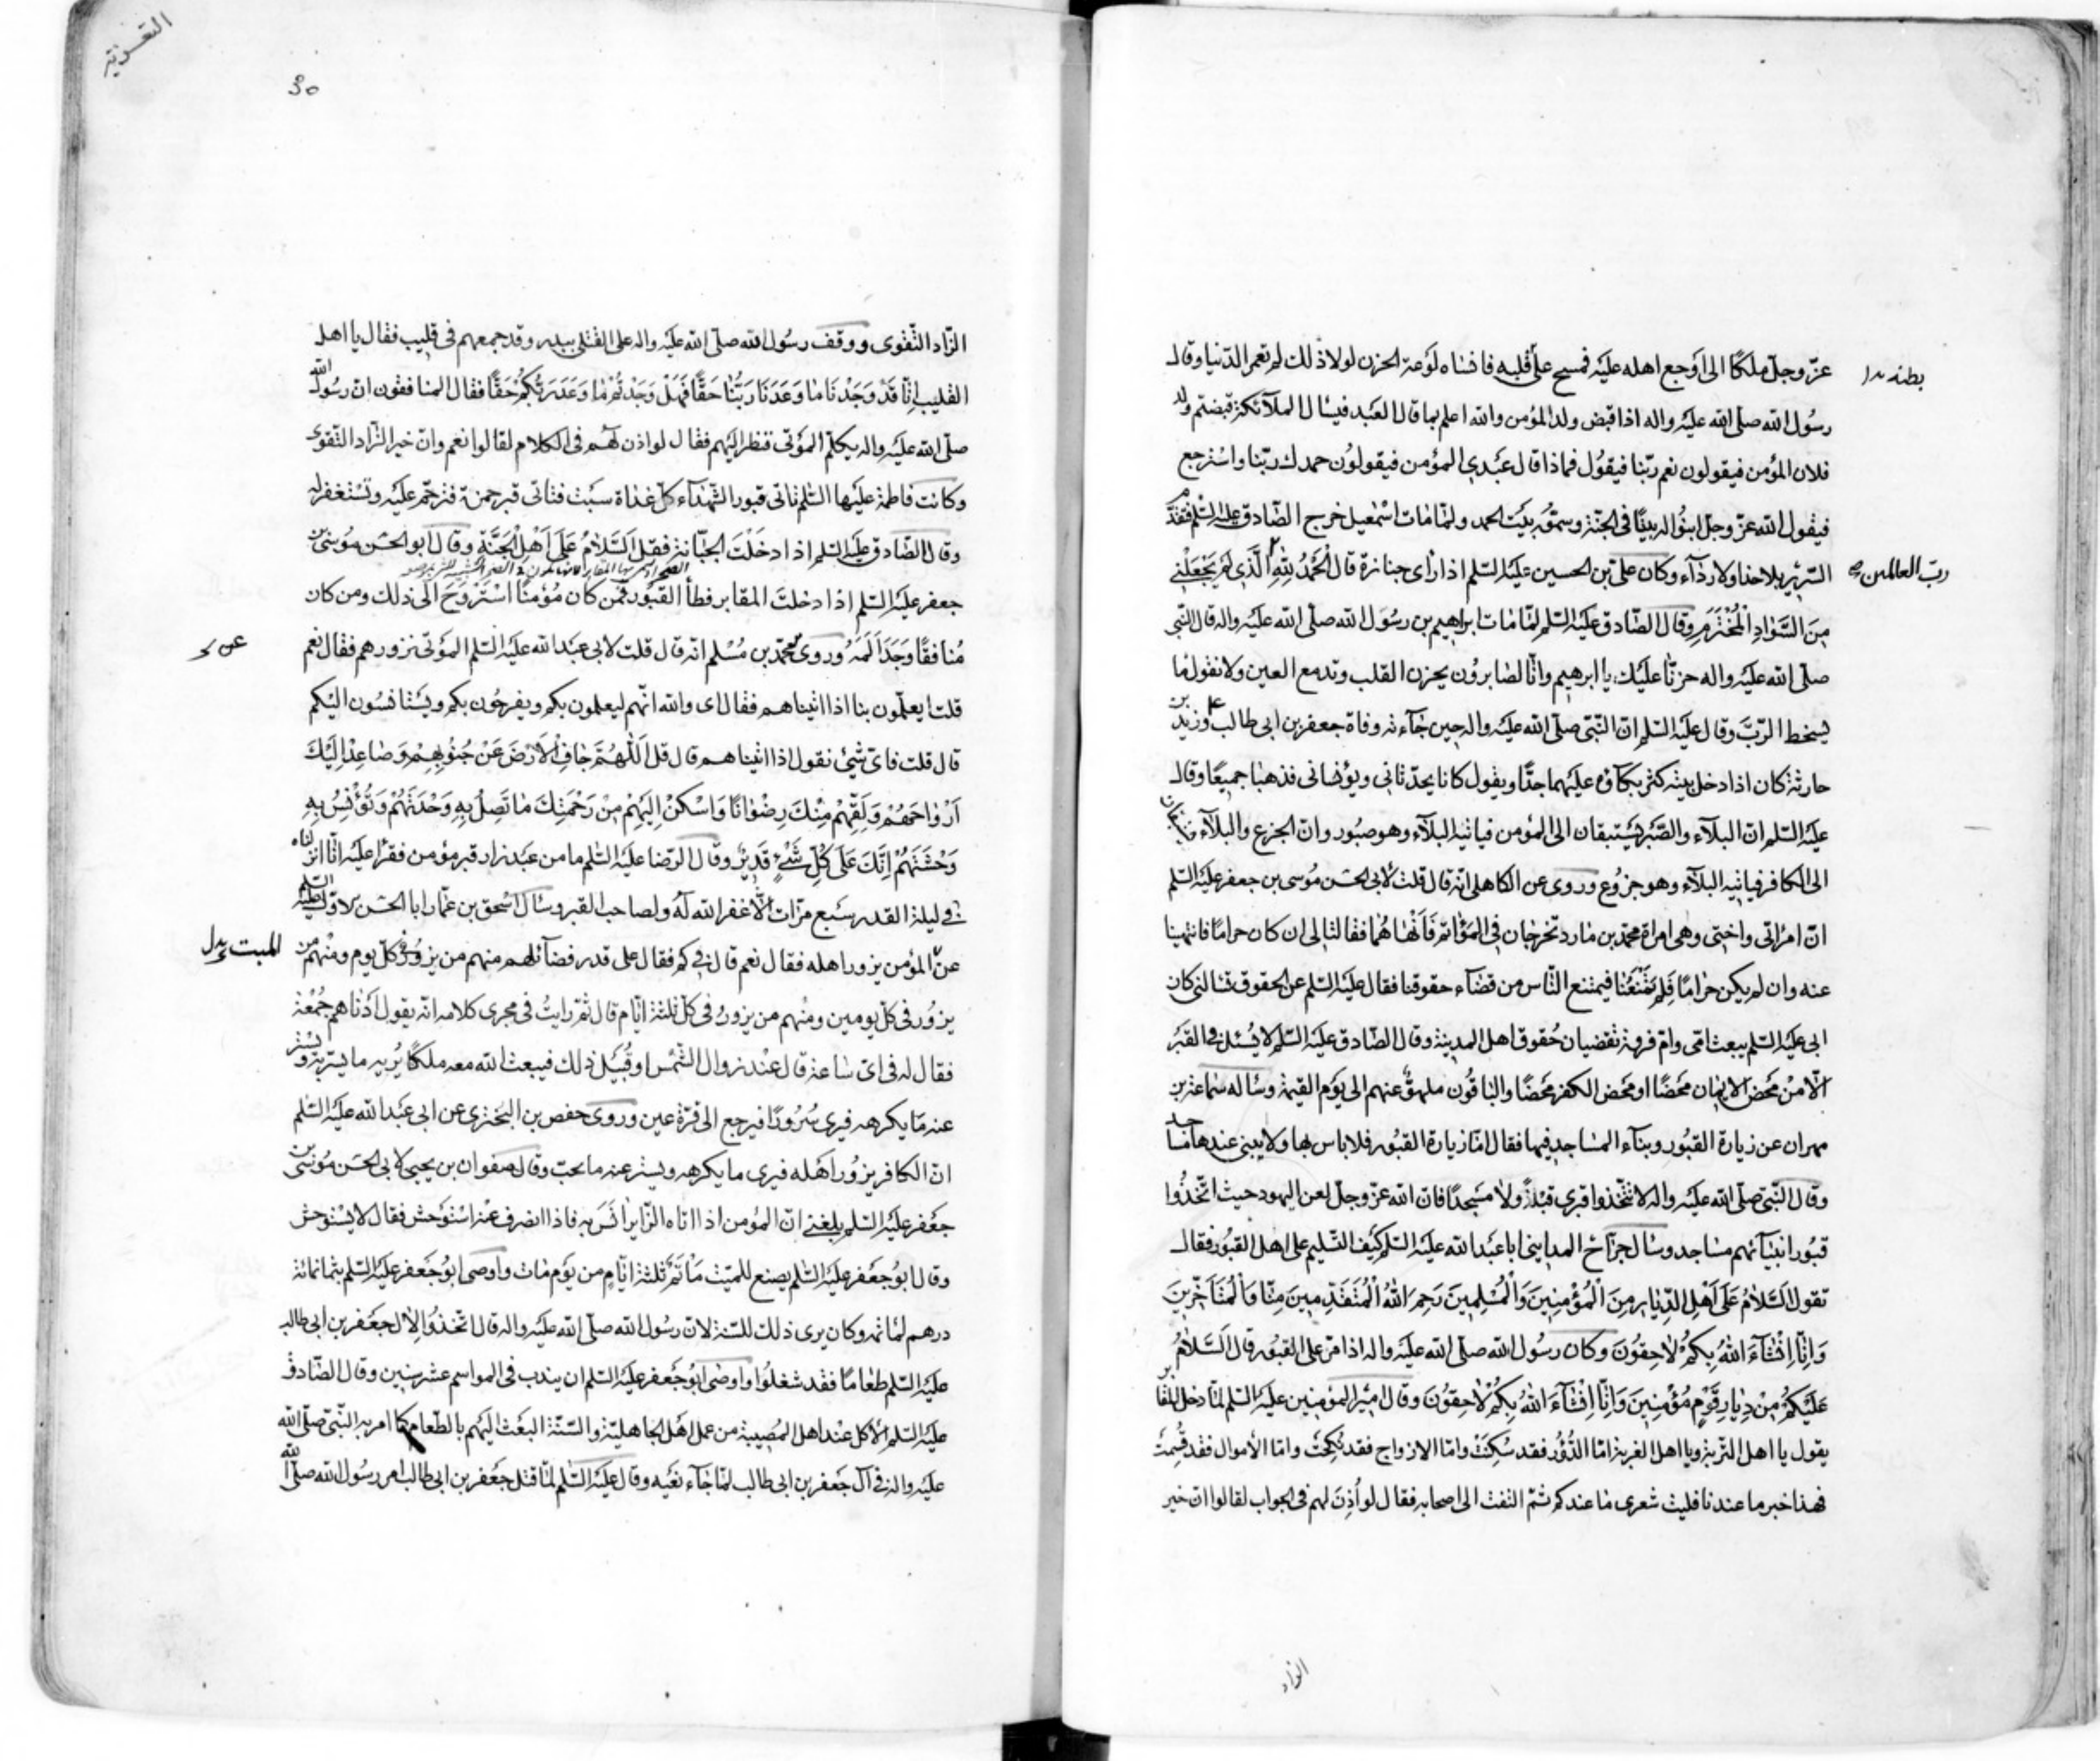 عزّ وجلّ ملكًا الى اوجع اهله عليه فمسح على قلبه فانساه لوعة الحزن لولا ذلك لم تعمر الدّنيا وقال
رسُول الله صلّى الله عليه واله اذا قبض ولد المؤمن والله اعلم بما قال العبد فيسأل الملآئكة قبضتم ولد
فلان المؤمن فيقولون نعم ربّنا فيقول فماذا قال عبدى المؤمن فيقولون حمدك ربّنا واسترجع
فيقول الله عزّ وجلّ ابنوا له بيتًا فى الجنّة وسمّوه بيت الحمد ولمّا مات اسمعيل خرج الصّادق عليه السّلم فتقدّم
السّرير بلا حذاء ولا ردآء وكان علىّ بن الحسين عليه السّلم اذا رأى جنازة قال الْحَمْدُ لِلّٰهِ الَّذِى لَمْ يَجْعَلْنِى
مِنَ السَّوَادِ الْمُخْتَرَمِ وقال الصّادق عليه السّلم لمّا مات ابراهيم بن رسُول الله صلّى الله عليه واله قال النّبى
صلّى الله عليه واله حزنّا عليك يا ابرهيم وانّا لصابرون يحزن القلب وتدمع العين ولا نقول ما
يسخط الرّبّ وقال عليه السّلم انّ النّبىّ صلّى الله عليه واله حين جآءته وفاة جعفر بن ابى طالب ع وزيد بن
حارثة كان اذا دخل بيته كثر بكآؤه عليهما جدًّا ويقول كانا يحدّثانى ويؤنسانى فذهبا جميعًا وقال
عليه السّلم انّ البلآء والصّبر يستبقان الى المؤمن فياتيه البلآء وهو صبور وانّ الجزع والبلآء يستبقان
الى الكافر فياتيه البلآء وهو جزوع وروى عن الكاهلى انّه قال قلت لابى الحسن موسى بن جعفر عليه السّلم
انّ امرأتى واختى وهى امرأة محمّد بن مارد تخرجان فى المؤاتم فَاَنْهَاهُما فقالتا لى ان كان حرامًا فانتهينا
عنه وان لم يكن حرامًا فلم تمنعنا فيمتنع النّاس من قضآء حقوقنا فقال عليه السّلم عن الحقوق تسألنى كان
ابى عليه السّلم يبعث امّى وامّ فروة تقضيان حقوق اهل المدينة وقال الصّادق عليه السّلم لا يُسئل فى القبر
الّا من محض الايمان محضًا او محض الكفر محضًا والباقون ملهوّ عنهم الى يوم القيمة وسأله سماعة بن
مهران عن زيارة القبور وبنآء المساجد فيها فقال امّا زيارة القبور فلا باس بها ولا يبنى عندها مساجد
وقال النّبىّ صلّى الله عليه واله لا تتّخذوا قبرى قبلةً ولا مسجدًا فانّ الله عزّ وجلّ لعن اليهود حيث اتّخذوا
قبور انبيآئهم مساجد وسأل جرّاح المداينى ابا عبد الله عليه السّلم كيف التّسليم على اهل القبور فقال
تقول السَّلامُ عَلَى اَهْلِ الدِّيَارِ مِنَ الْمُؤْمِنِينَ وَالْمُسْلِمِينَ رَحِمَ اللّٰهُ الْمُتَقَدِّمِينَ مِنَّا وَالْمُتَاَخِّرِينَ
وَاِنَّا اِنْشَآءَ اللّٰهُ بِكُمْ لَاحِقُونَ وكان رسُول الله صلّى الله عليه واله اذا مرّ على القبور قال السَّلَامُ
عَلَيْكُمْ مِنْ دِيَارِ قَوْمٍ مُؤْمِنِينَ وَاِنَّا اِنْشَآءَ اللّٰهُ بِكُمْ لَاحِقُونَ وقال امير المؤمنين عليه السّلم لمّا دخل المقابر
يقول يا اهل التّربة ويا اهل الغربة امّا الدُّوُر فقد سُكِنَتْ وامّا الازواج فقد نُكِحَتْ وامّا الأموال فقد قُسِمَتْ
فهذا خبر ما عندنا فليت شعرى ما عندكم ثمّ التفت الى اصحابه فقال لو اُذِنَ لهم فى الجواب لقالوا انّ خير
ربّ العالمين
الزاد
التعزية
الزّاد التّقوى ووقف رسُول الله صلّى الله عليه واله على القتلى ببدر وقد جمعهم فى قليب فقال يا اهل
القليب اِنَّا قَدْ وَجَدْنَا مَا وَعَدَنَا رَبُّنَا حَقًّا فَهَلْ وَجَدْتُمْ مَا وَعَدَ رَبُّكُمْ حَقًّا فقال المنافقون انّ رسُول الله
صلّى الله عليه واله يكلّم الموتى فنظر اليهم فقال لو اذن لهم فى الكلام لقالوا نعم وانّ خير الزّاد التّقوى
وكانت فاطمة عليها السّلم تاتى قبور الشّهدآء كلّ غداة سبت فتاتى قبر حمزة فترحّم عليه وتستغفر له
وقال الصّادق عليه السّلم اذا دخلت الجبّانة فقل السَّلَامُ عَلَى اَهْلِ الْجَنَّةِ وقال ابو الحسن موسى بن
جعفر عليه السّلم اذا دخلت المقابر فطأ القبور فمن كان مؤمنًا استروح الى ذلك ومن كان
مُنافقًا وجد اَلَمَهُ وروى محمّد بن مُسْلم انّه قال قلت لابى عبد الله عليه السّلم الموتى نزورهم فقال نعم
قلت ايعلمون بنا اذا اتيناهم فقال اى والله انّهم ليعلمون بكم ويفرحون بكم ويستانسون اليكم
قال قلت فاىّ شىء نقول اذا اتيناهم قال قل اَللّٰهُمَّ جَافِ الْاَرْضَ عَنْ جُنُوبِهِمْ وَصَاعِدْ اِلَيْكَ
اَرْوَاحَهُمْ وَلَقِّهِمْ مِنْكَ رِضْوَانًا وَاَسْكِنْ اِلَيْهِمْ مِنْ رَحْمَتِكَ مَا تَصِلُ بِهِ وَحْدَتَهُمْ وَتُؤْنِسُ بِهِ
وَحْشَتَهُمْ اِنَّكَ عَلَى كُلِّ شَىْءٍ قَدِيرٌ وقال الرّضا عليه السّلم ما من عبد زار قبر مؤمن فقرأ عليه انّا انزلناه
فى ليلة القدر سبع مرّات الّا غفر الله له ولصاحب القبر وسأل اسحق بن عمّار ابا الحسن الاوّل عليه السّلم
عن المؤمن يزور اهله فقال نعم قال فى كم فقال على قدر فضآئلهم منهم من يزور فى كلّ يوم ومنهم من
يزور فى كلّ يومين ومنهم من يزور فى كلّ ثلثة ايّام قال ثمّ رايت فى مجرى كلامه انّه يقول ادناهم جُمْعة
فقال له فى اىّ ساعة قال عند زوال الشّمس او قُبَيْل ذلك فيبعث الله معه ملكًا يُريه ما يسرّ به ويستر
عنه ما يكرهه فيرى سُرُورًا فيرجع الى قرّة عين وروى حفص بن البخترى عن ابى عبد الله عليه السّلم
انّ الكافر يزور اهله فيرى ما يكرهه ويستر عنه ما يحبّ وقال صفوان بن يحيى لابى الحسن موسى بن
جعفر عليه السّلم بلغنى انّ المؤمن اذا اتاه الزّاير اَنَسَ به فاذا انصرف عنه استوحش فقال لا يستوحش
وقال ابو جعفر عليه السّلم يصنع للميّت مَأْتَمٌ ثلثة ايّام من يوم مات واوصى ابو جعفر عليه السّلم بثمانمائة
درهم لمأتمه وكان يرى ذلك للسّنة لانّ رسُول الله صلّى الله عليه واله قال اتّخذوا لاٰل جعفر بن ابى طالب
عليه السّلم طعامًا فقد شغلوا واوصى ابو جعفر عليه السّلم ان يندب فى المواسم عشر سنين وقال الصّادق
عليه السّلم الأكل عند اهل المُصيبة من عمل اهل الجاهليّة والسّنّة البعث اليهم بالطّعام كما امر به النّبىّ صلّى الله
عليه واله فى آل جعفر بن ابى طالب لمّا جآء نعيه وقال عليه السّلم لمّا قتل جعفر بن ابى طالب امر رسُول الله صلّى الله
الميت بدل